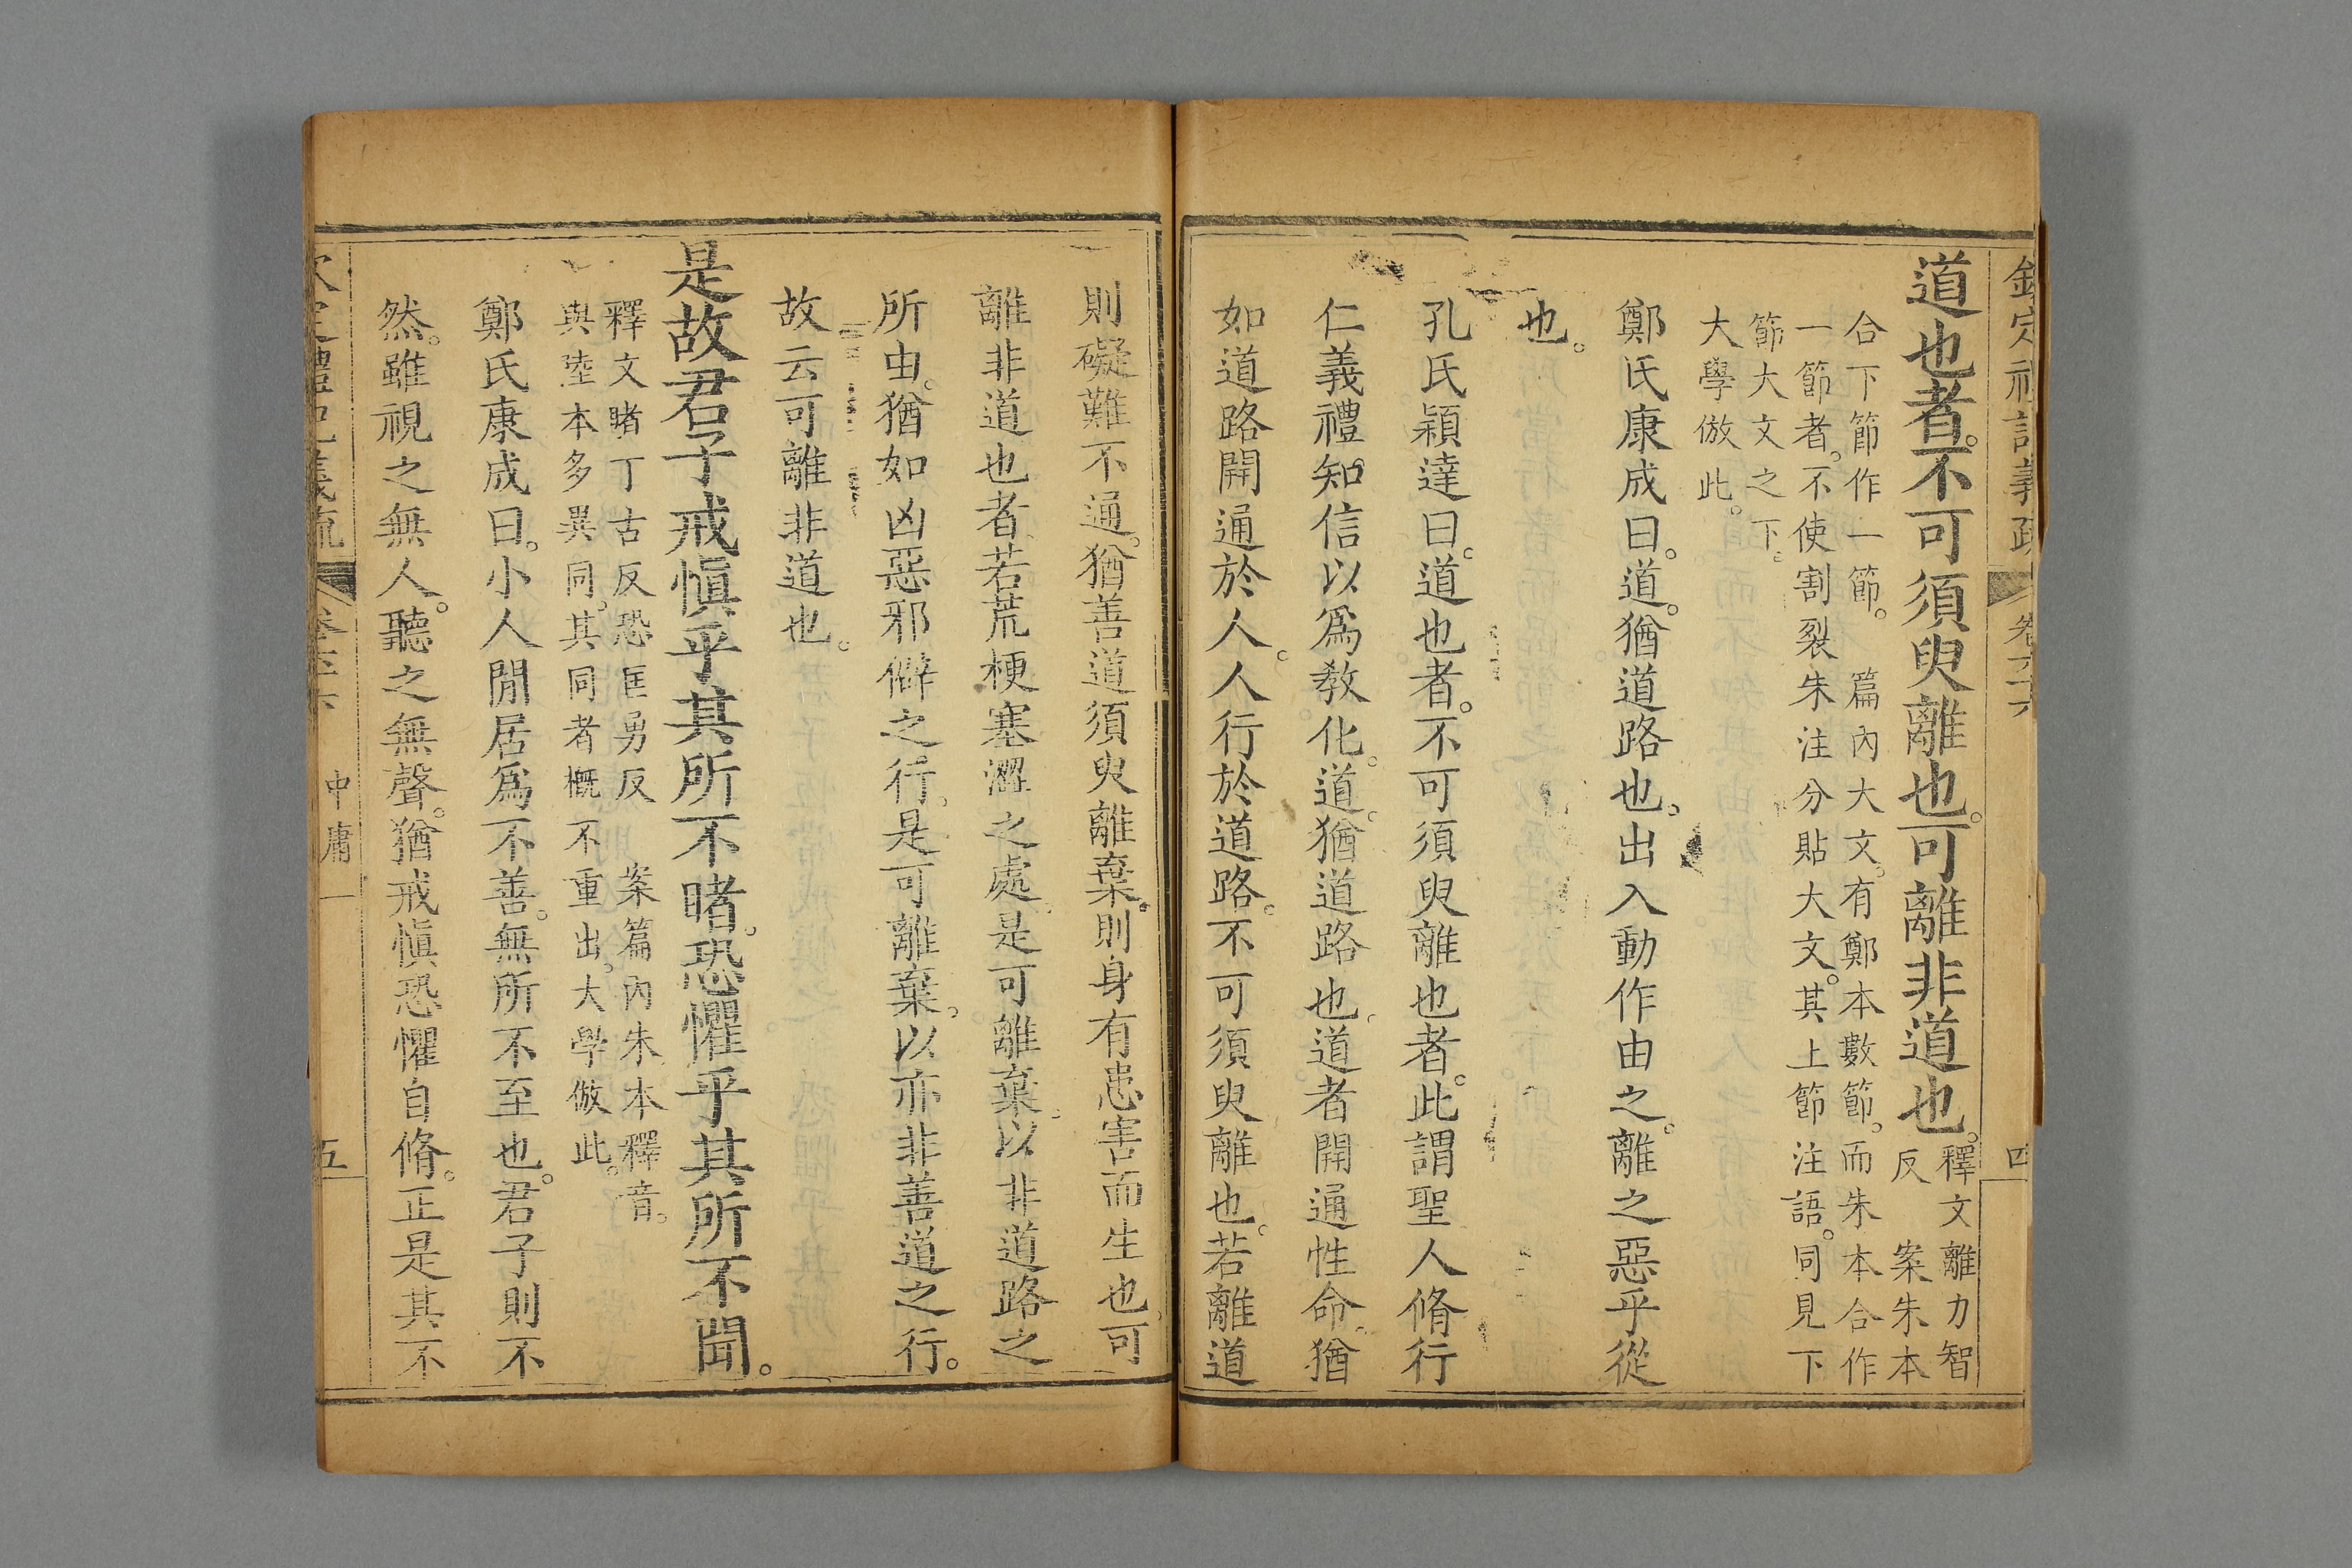 道也者。不可須臾離也。可離非道也。釋文離力智
反　案朱本
合下節作一節。　篇內大文。有鄭本數節。而朱本合作
一節者。不使割裂朱注分貼大文。其上節注語。同見下
節大文之下。
大學倣此。
鄭氏康成曰。道。猶道路也。出入動作由之。離之惡乎從
也。
孔氏穎達曰。道也者。不可須臾離也者。此謂聖人脩行
仁義禮知信以爲敎化。道。猶道路也。道者開通性命。猶
如道路開通於人。人行於道路。不可須臾離也。若離道
則礙難不通。猶善道須臾離棄。則身有患害而生也。可
離非道也者。若荒梗塞澀之處。是可離棄。以非道路之
所由。猶如凶惡邪僻之行。是可離棄。以亦非善道之行。
故云可離非道也。
是故君子戒愼乎其所不睹。恐懼乎其所不聞。
釋文睹丁古反恐匡勇反　案篇內朱本釋音。
與陸本多異同。其同者槪不重出。大學倣此。
鄭氏康成曰。小人閒居爲不善。無所不至也。君子則不
然。雖視之無人。聽之無聲。猶戒愼恐懼自脩。正是其不
中庸
五